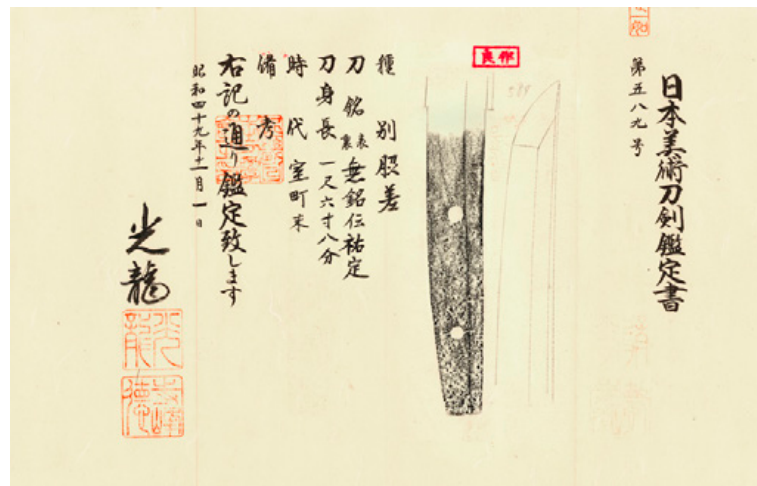 日本美術刀剣鑑定書
第五八九号
良作
589
種別 脇差
刀銘 表裏 無銘伝祐定
刀身長 一尺六寸八分
時代 室町末
備考
右記の通り鑑定致します
昭和四十九年十一月一日
光龍